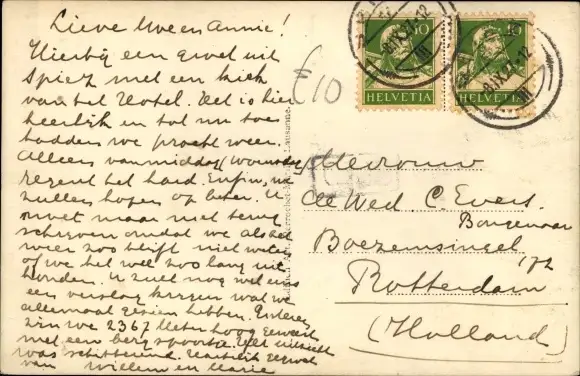 Lieve Moe en Annie!
Hierbij een groet uit
Spiez met een kiek
van het Hotel. Het is hier
heerlijk en tot nu toe
hadden we pracht weer.
Alleen vanmiddag (woensdag
regent het hard. Enfin, we
zullen hopen op beter. U
moet maar niet terug
schrijven omdat we als het
weer zoo blijft niet weten
of we het wel zoo lang uit
houden. U zult nog wel eens
een verslag krijgen wat we
allemaal gezien hebben. Gisteren
zijn we 2367 Meter hoog geweest
met een bergspoortje. Het uitzicht
was schitterend. Hartelijk gegroet
van Willem en Marie
£10
10
10
HELVETIA
HELVETIA
Mevrouw
de Wed. C. Evers.
Bongenaar
Boezemsingel
172
Rotterdam
(Holland)